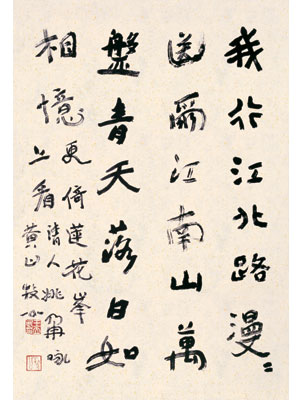 我行江北路漫〻
送爾江南山萬
盤青天落日如
相憶更倚蓮花峯
上看清人姚鼐咏
黄山